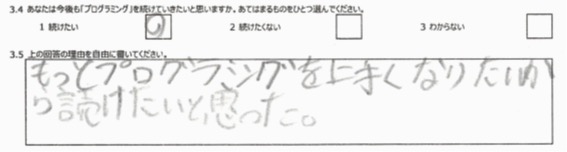 3.4 あなたは今後も「プログラミング」を続けていきたいと思いますか。あてはまるものをひとつ選んでください。
1 続けたい 2 続けたくない 3 わからない
3.5 上の回答の理由を自由に書いてください。
もっとプログラミングを上手くなりたいか
ら続けたいと思った。